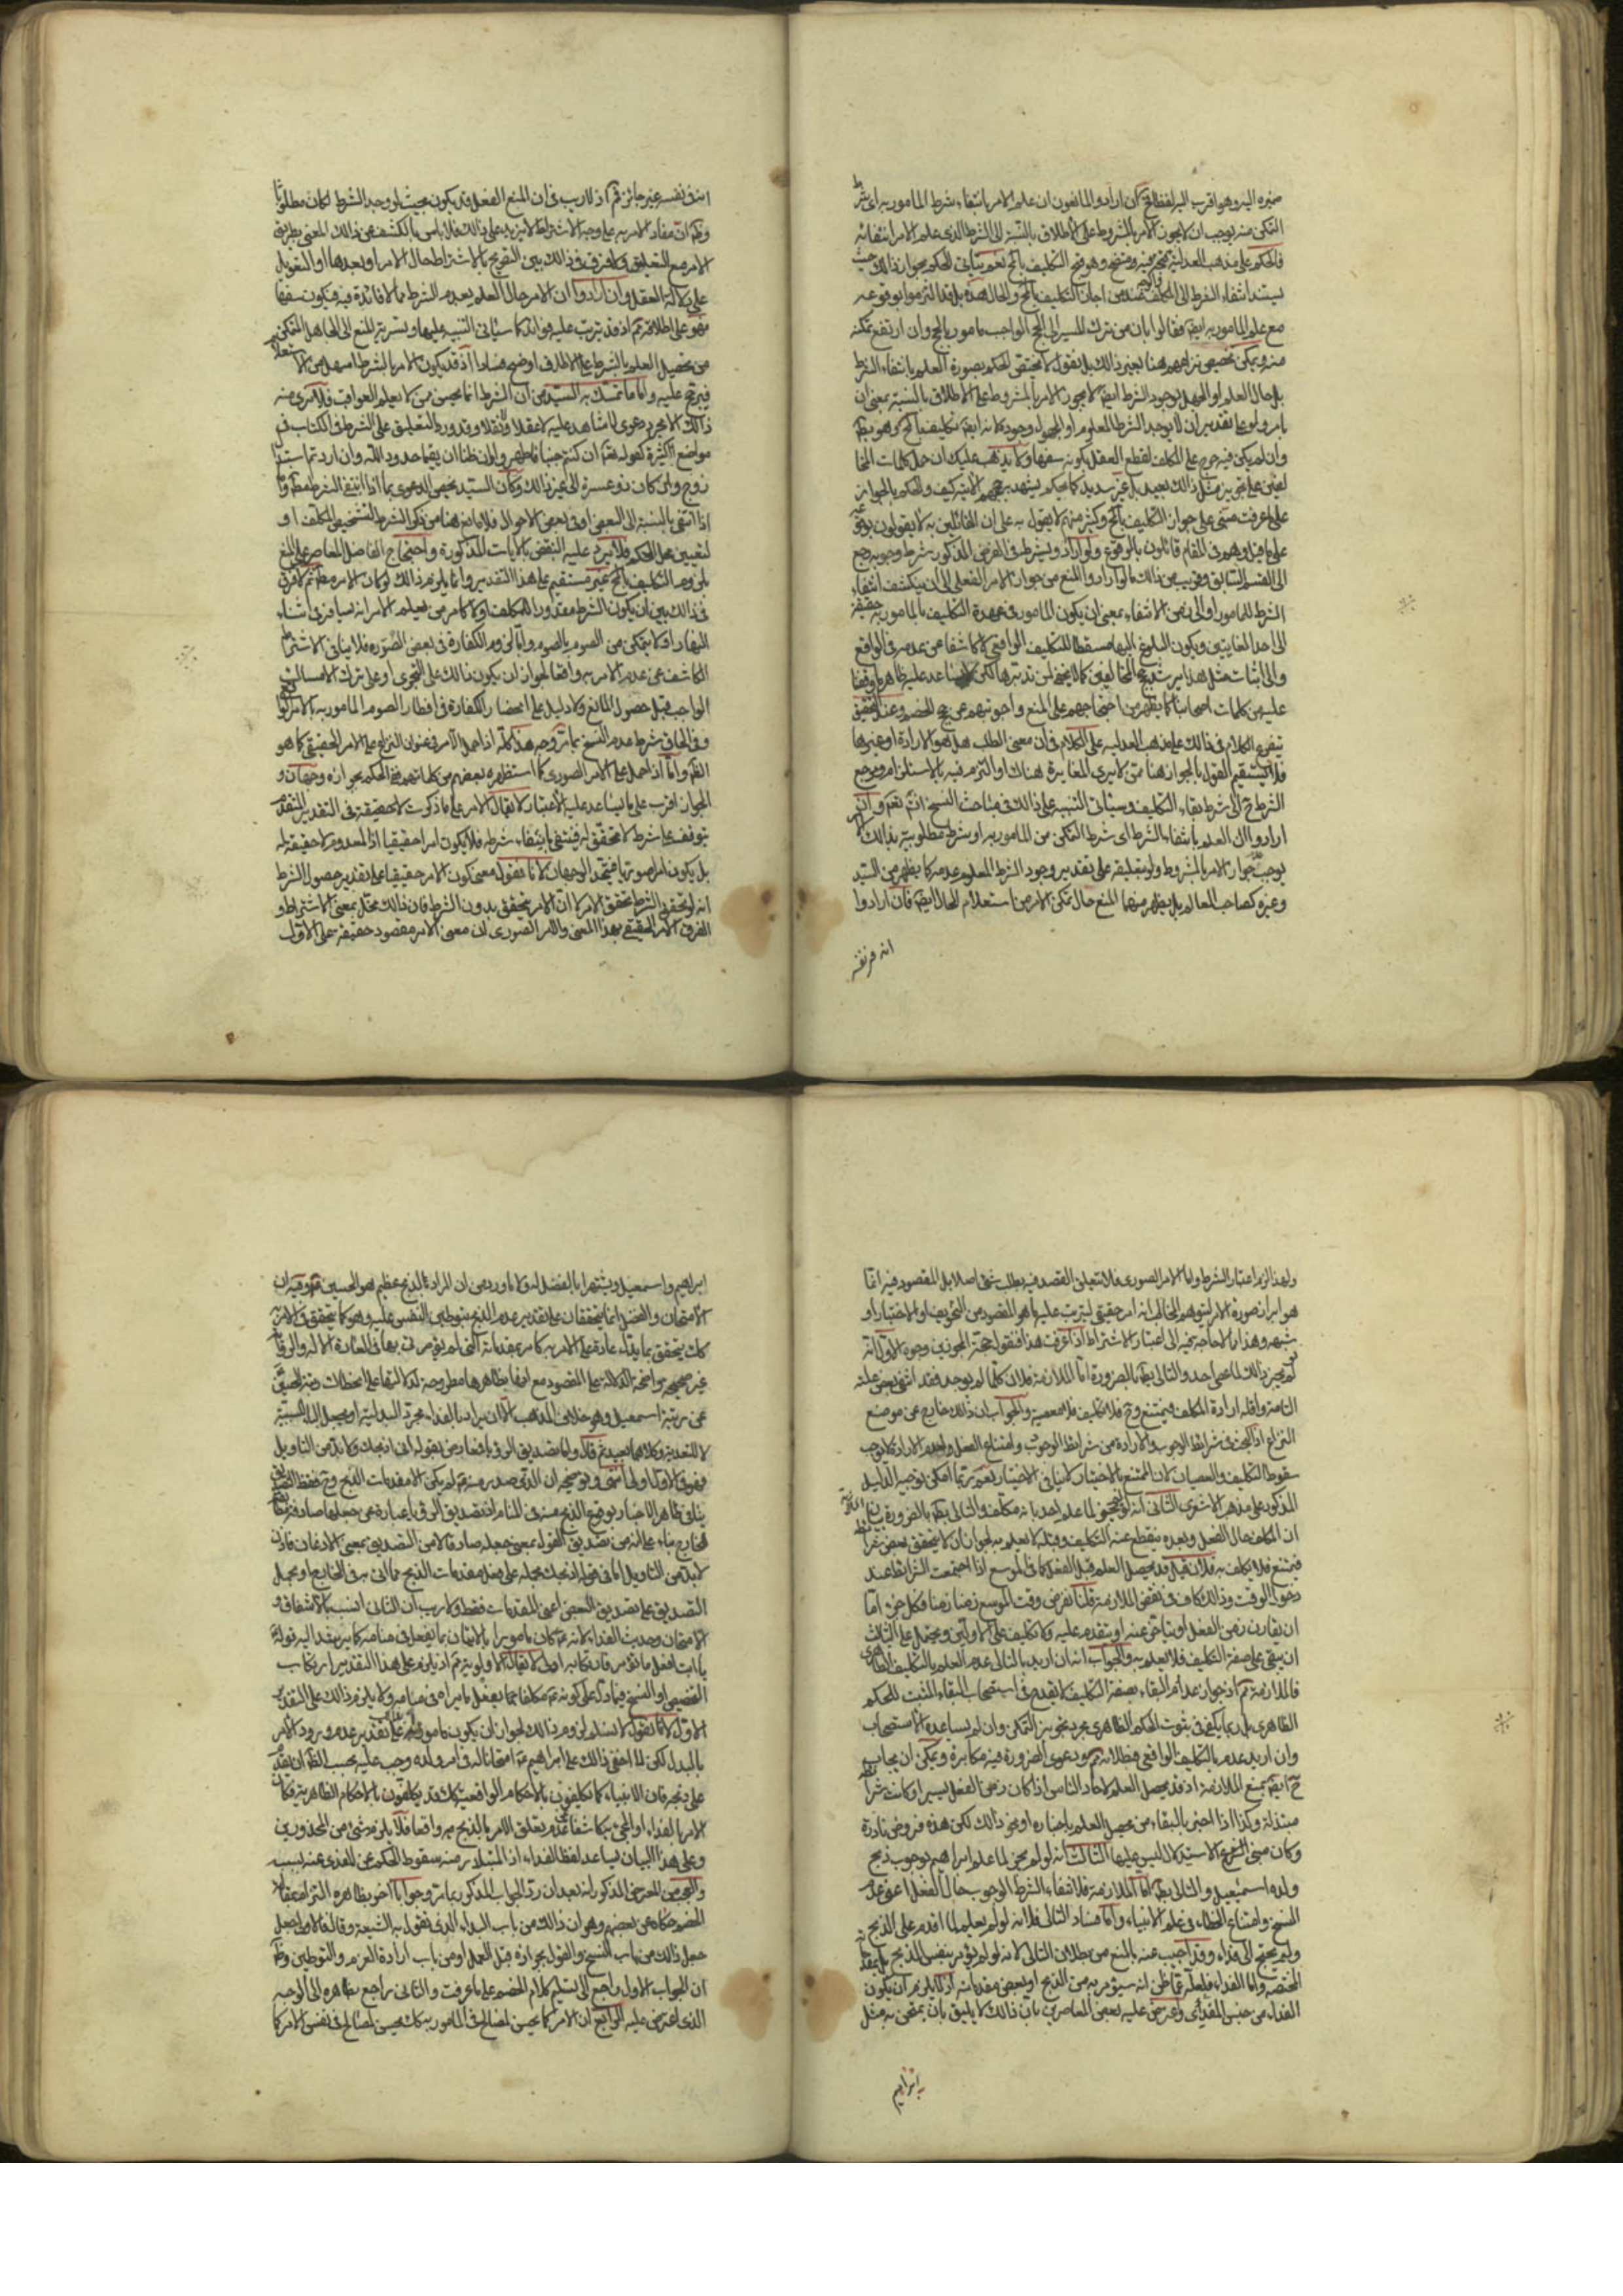 ضميره اليه وهو اقرب اليه لفظا فح ان اراد المانعون ان علم الامر بانتفاء شرط المامور به اى شرط
التمكن منه يوجب ان لا يجوز الامر بالمشروط على الاطلاق بالنسبة الى الشرط الذى علم الامر انتفائه
فالحكم على مذهب العدلية متجه وهو قبح التكليف بالمح نعم يتأتى الحكم بجواز ذلك حيث
يستند انتفاء الشرط الى المكلف عند من اجاز التكليف بالمح والحال هذه بل قد التزموا بوقوعه
مع علم المامور به ايضا فقالوا بان من ترك المسير الى الحج الواجب مامور بالحج وان ارتفع تمكنه
منه ويمكن تخصيص نزاعهم هنا بغير ذلك بل نقول لا يختص الحكم بصورة العلم بانتفاء الشرط
بل حال العلم او الجهل بوجود الشرط ايضا لا يجوز الامر بالمشروط على الاطلاق بالنسبة بمعنى ان
يامر ولو على تقدير ان لا يوجد الشرط المعلوم او المجهول وجوده لانه ايضا تكليف بالمح
وان لم يكن فيه حرج على المكلف لقطع العقل بكونه سفها ولا يذهب عليك ان حمل كلمات
على ما عرفت مبنى على جواز التكليف بالمح وكثير منهم لا يقول به على ان القائلين به لا يقولون بوقوعه
على ما قيل وهم فى المقام قائلون بالوقوع ولو اراد ويشترط فى الفرض المذكور شرط وجوبه رجع
الى القسم السابق وقريب من ذلك ما لو ارادوا المنع من جواز الامر الفعلى الى ان ينكشف انتفاء
الشرط للمامور او الى زمن الانتفاء بمعنى ان يكون المامور فى عهدة التكليف بالمامور به حقيقة
الى احد الغايتين ويكون البلوغ اليها مسقطا للتكليف الواقعى لا كاشفا عن عدمه فى الواقع
والى اثبات مثل هذا يرشد حجج المخالفين كما لا يخفى لمن تدبرها لكن لا يساعد عليه ظاهر ما وقفنا
عليه من كلمات اصحابنا كما يظهر من احتجاجهم على المنع واجوبتهم عن حجج الخصم وعند التحقيق
يتفرع الكلام فى ذلك على مذهب العدلية على الكلام فى ان معنى الطلب هل هو الارادة او غيرها
فلا يستقيم القول بالجواز هنا ممن لا يرى المغايرة هناك او التزم فيه بالاستلزام ومرجع
الشرط ح الى شرط بقاء التكليف وسيأتى التنبيه على ذلك فى مباحث النسخ انش تعم وان
ارادوا ان العلم بانتفاء الشرط اى شرط التمكن من المامور به او شرط مطلوبيته بذلك الامر
يوجب عدم جواز الامر بالمشروط ولو بتعليقه على تقدير وجود الشرط المعلوم عدمه كما يظهر من السيد
وغيره كصاحب المعالم بل يظهر منهما المنع حال تمكن الامر من استعلام الحال ايضا فان ارادوا
انه فى نفسه
انه فى نفسه غير جائز فم اذ لا ريب فى ان الممتنع الفعل قد يكون بحيث لو وجد الشرط لكان مطلوبا
وظ ان مفاد الامر به على وجه الاشتراط لا يزيد على ذلك فلا باس بالكشف عن ذلك المعنى بطريق
الامر مع التعليق ولا فرق فى ذلك بين التصريح بالاشتراط حال الامر او بعدها او التعويل
على دلالة العقل وان ارادوا ان الامر حال العلم بعدم الشرط مما لا فائدة فيه فيكون سفها
فهو على اطلاقه مم اذ قد يترتب عليه فوائد كما سيأتى التنبيه عليها وتسرية المنع الى الجاهل المتمكن
من تحصيل العلم بالشرط على الاطلاق اوضح فسادا اذ قد يكون الامر بالشرط اسهل من الاستعلام
فيرجح عليه واما ما تمسك به السيد من ان الشرط انما يحسن ممن لا يعلم العواقب فلا نرى منه
ذلك الا مجرد دعوى لا شاهد عليه لا عقلا ولا نقلا وقد ورد التعليق على الشرط فى الكتاب فى
مواضع كثيرة كقوله تعالى ان كنتم جنبا فاطهروا وان ظنا ان يقيما حدود الله وان اردتم استبدال
زوج وان كان ذو عسرة الى غير ذلك وكان السيد يخص الدعوى بما اذا انتفى الشرط مطلقا واما
اذا انتفى بالنسبة الى البعض او فى بعض الاحوال فلا مانع هنا من ذكر الشرط لتشخيص المكلف او
لتعيين محل الحكم فلا يرد عليه النقض بالآيات المذكورة واحتجاج الفاضل المعاصر على المنع
بلزوم التكليف بالمح غير مستقيم على هذا التقدير وانما يلزم ذلك لو كان الامر مطلقا ثم لا فرق
فى ذلك بين ان يكون الشرط مقدورا للمكلف او لا كامر من يعلم الامر انه يسافر فى اثناء
النهار او لا يتمكن من الصوم بالصوم واما لزوم الكفارة فى بعض الصور فلا ينافى الاشتراط
الكاشف عن عدم الامر به واقعا لجواز ان يكون ذلك على التجرى او على ترك الامساك
الواجب قبل حصول المانع ولا دليل على انحصار الكفارة فى افطار الصوم المامور به الامر الواقعى
وفى الحاق شرط عدم النسخ بما مر وجه هذا كله اذا حمل الامر فى عنوان النزاع على الامر الحقيقى كما هو
الظ واما اذا حمل على الامر الصورى كما استظهره بعضهم من كلماتهم ففى الحكم بجوازه وجهان و
الجواز اقرب على ما يساعد عليه الاعتبار لا يقال الامر على ما ذكرت لا حقيقة فى التقدير المتقدم
توقفه على شرط لا تحقق له فينتفى بانتفاء شرطه فلا يكون امرا حقيقيا اذ المعدوم لا حقيقة له
بل يكون امرا صوريا فيتحد الوجهان لانا نقول معنى كون الامر حقيقيا على تقدير حصول الشرط
انه لو تحقق الشرط تحقق الامر لا ان الامر يتحقق بدون الشرط فان ذلك مخل بمعنى الاشتراط و
الفرق الامر الحقيقى بهذا المعنى والامر الصورى ان معنى الامر مقصود حقيقة على الاول
ولهذا لزم اعتبار الشرط واما الامر الصورى فلا يتعلق القصد فيه بطلب شئ اصلا بل المقصود فيه انما
هو ابراز صورة الامر ليتوهم المخاطب انه امر حقيقى ليترتب عليه ما هو المقصود من التخويف او الاختبار او
شبهه وهذا مما لا حاجة فيه الى اعتبار الاشتراط اذا عرفت هذا فنقول حجة المجوزين وجوه الاول انه
لو لم يجز ذلك لما عصى احد والتالى بط بالضرورة اما الملازمة فلان كلما لم يوجد فقد انتفى بعض علته
التامة واقله ارادة المكلف فيمتنع وح فلا تكليف فلا معصية والجواب ان ذلك خارج عن موضع
النزاع اذ البحث فى شرائط الوجوب والارادة من شرائط الوجود وامتناع الفعل لعدم الارادة لا يوجب
سقوط التكليف والعصيان لان الممتنع بالاختيار لا ينافى الاختيار نعم ربما امكن توجيه الدليل
المذكور على مذهب الاشعرى الثانى انه لو لم يجز لما علم احد بانه مكلف والتالى بط بالضرورة بيان الملازمة
ان المكلف حال الفعل وبعده ينقطع عنه التكليف وقبله لا يعلم به لجواز ان لا يتحقق بعض شرائطه
فيمتنع فلا تكليف به فلان قيل قد يحصل العلم قبل الفعل كما فى الموسع اذا اجتمعت الشرائط عند
دخول الوقت وذلك كاف فى نقض الملازمة قلنا نفرض وقت الموسع زمنا زمنا فكل جزء اما
ان يقارن زمن الفعل او يتأخر عنه او يتقدم عليه ولا تكليف على الاولين ويحتمل على الثالث
ان يبقى على صفة التكليف فلا يعلم به والجواب انه ان اريد بالتالى عدم العلم بالتكليف الظاهرى
فالملازمة مم اذ جواز عدم البقاء بصفة التكليف لا يقدح فى استصحاب البقاء المثبت للحكم
الظاهرى بل ربما يكفى فى ثبوت الحكم الظاهرى مجرد تجويز التمكن وان لم يساعده الاستصحاب
وان اريد عدم العلم بالتكليف الواقعى فبطلانه مم ودعوى الضرورة فيه مكابرة ويمكن ان يجاب
ح ايضا بمنع الملازمة اذ قد يحصل العلم لاحاد الناس اذا كان زمن الفعل يسيرا وكانت شرائطه
مبتذلة وكذا اذا اخبر بالبقاء من يحصل العلم باخباره او نحو ذلك لكن هذه فروض نادرة
وكان مبنى الاستدلال ليس عليها الثالث انه لو لم يجز لما علم ابراهيم بوجوب ذبح
ولده اسمعيل والتالى بط اما الملازمة فلانتفاء الشرط الوجوب حال الفعل اعنى عدم
النسخ وامتناع الخطاء فى علم الانبياء واما فساد التالى فلانه لو لم يعلم لما اقدم على الذبح
ولم يحتج الى فداء وقد اجيب عنه بالمنع من بطلان التالى لانه لو لم يؤمر بنفس الذبح بل بمقدماته
المختصة واما الفداء فلعله عما ظن انه سيؤمر به من الذبح او بعض مقدماته اذ لا يلزم ان يكون
الفداء من جنس المفدى واعترض عليه بعض المعاصرين بان ذلك لا يليق بان يمتحن به مثل
ابراهيم
ابراهيم واسمعيل ويشتهرا بالفضل لذلك ولا ما ورد من ان المراد بالذبح عظيم هو الحسين ع وفيه ان
الامتحان والفضل انما يتحققان على تقدير عدم الذبح بتوطين النفس عليه وهو كما يتحقق فى الامر به
كك يتحقق بما يدل عادة على الامر به كامر بمقدماته التى لم يؤمر فى بها فى العادة الا له والرؤيا
غير صحيحة واضحة الدلالة على المقصود مع انها بظاهرها مطروحة لدلالتها على انحطاط رتبة الحسين
عن رتبة اسمعيل وهو خلاف المذهب الا ان يراد بالفداء مجرد البدلية او يجعل الباء للسببية
لا للتعدية وكلاهما بعيد ثم قال واما تصديق الرؤيا فمعارض بقوله انى اذبحك ولا بد من التاويل
وهو فى الاول اولى انتهى وتوضيحه ان الذى صدر منه لم يكن الا مقدمات الذبح
ينافى ظاهر الاخبار بوقوع الذبح منه فى المنام اذ تصديق الرؤيا عبارة عن جعلها صادقة
لا بد من التاويل اما فى قوله اذبحك بحمله على فعل مقدمات الذبح مما انى به فى الخارج او بحمل
التصديق على تصديق البعض اعنى المقدمات فقط ولا ريب ان الثانى انسب بالاشفاق و
الامتحان وحديث الفداء لانه كان مامورا بالاتيان بما يفعل فى منامه كما يرشد اليه قوله
يا ابت افعل ما تؤمر فان لا يقال لا اولوية مم اذ يلزم على هذا التقدير ارتكاب
التخصيص او النسخ فيما دل على كونه مكلفا بما يفعل ما يراه فى منامه ولا يلزم ذلك على التقدير
الاول لانا نقول لا نسلم لزوم ذلك لجواز ان يكون مامورا به على تقدير عدم ورود الامر
بالبدل لكن لما اخفى ذلك على ابراهيم امتحانا له فى امر ولده وجب عليه بحسب الظ ان يقدم
على ذبحه فان الانبياء كما يكلفون بالاحكام الواقعية كك قد يكلفون بالاحكام الظاهرية فكان
الامر بالفداء او المجئ به كاشفا عن عدم تعلق الامر بالذبح به واقعا فلا يلزم شئ من المحذورين
وعلى هذا البيان يساعد لفظ الفداء اذ المتبادر منه سقوط الحكم عن المفدى عنه بسببه
والعجب من المعترض المذكور انه بعد ان رد الجواب المذكور بما مر وجوابا اخر بظاهره التزام بمقالة
الخصم حكاه عن بعضهم وهو ان ذلك من باب البداء الذى نقول به الشيعة وقال فالاولى جعل
جعل ذلك من باب النسخ والقول بجوازه قبل العمل او من باب ارادة العزم والتوطين وظ
ان الجواب الاول راجع الى تسليم كلام الخصم على ما عرفت والثانى راجع بظاهره الى الوجه
الذى اعترض عليه الرابع ان الامر كما يحسن لمصالح فى المامور به كك يحسن لمصالح فى نفس الامر كما